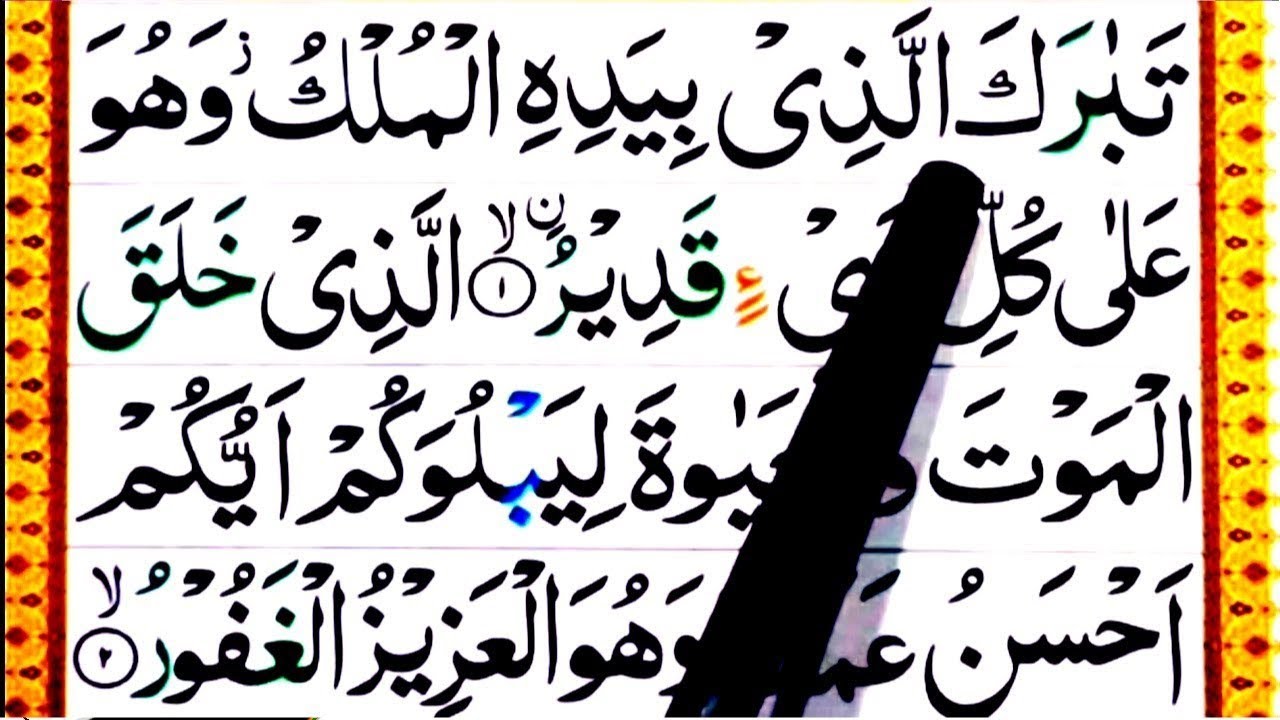 تَبٰرَكَ الَّذِىْ بِيَدِهِ الْمُلْكُ ز وَهُوَ
عَلٰى كُلِّ قَدِيْرُ ۨ ۙ ۱ الَّذِىْ خَلَقَ
الْمَوْتَ لِيَبْلُوَكُمْ اَيُّكُمْ
اَحْسَنُ وَهُوَ الْعَزِيْزُ الْغَفُوْرُ ۙ ۲